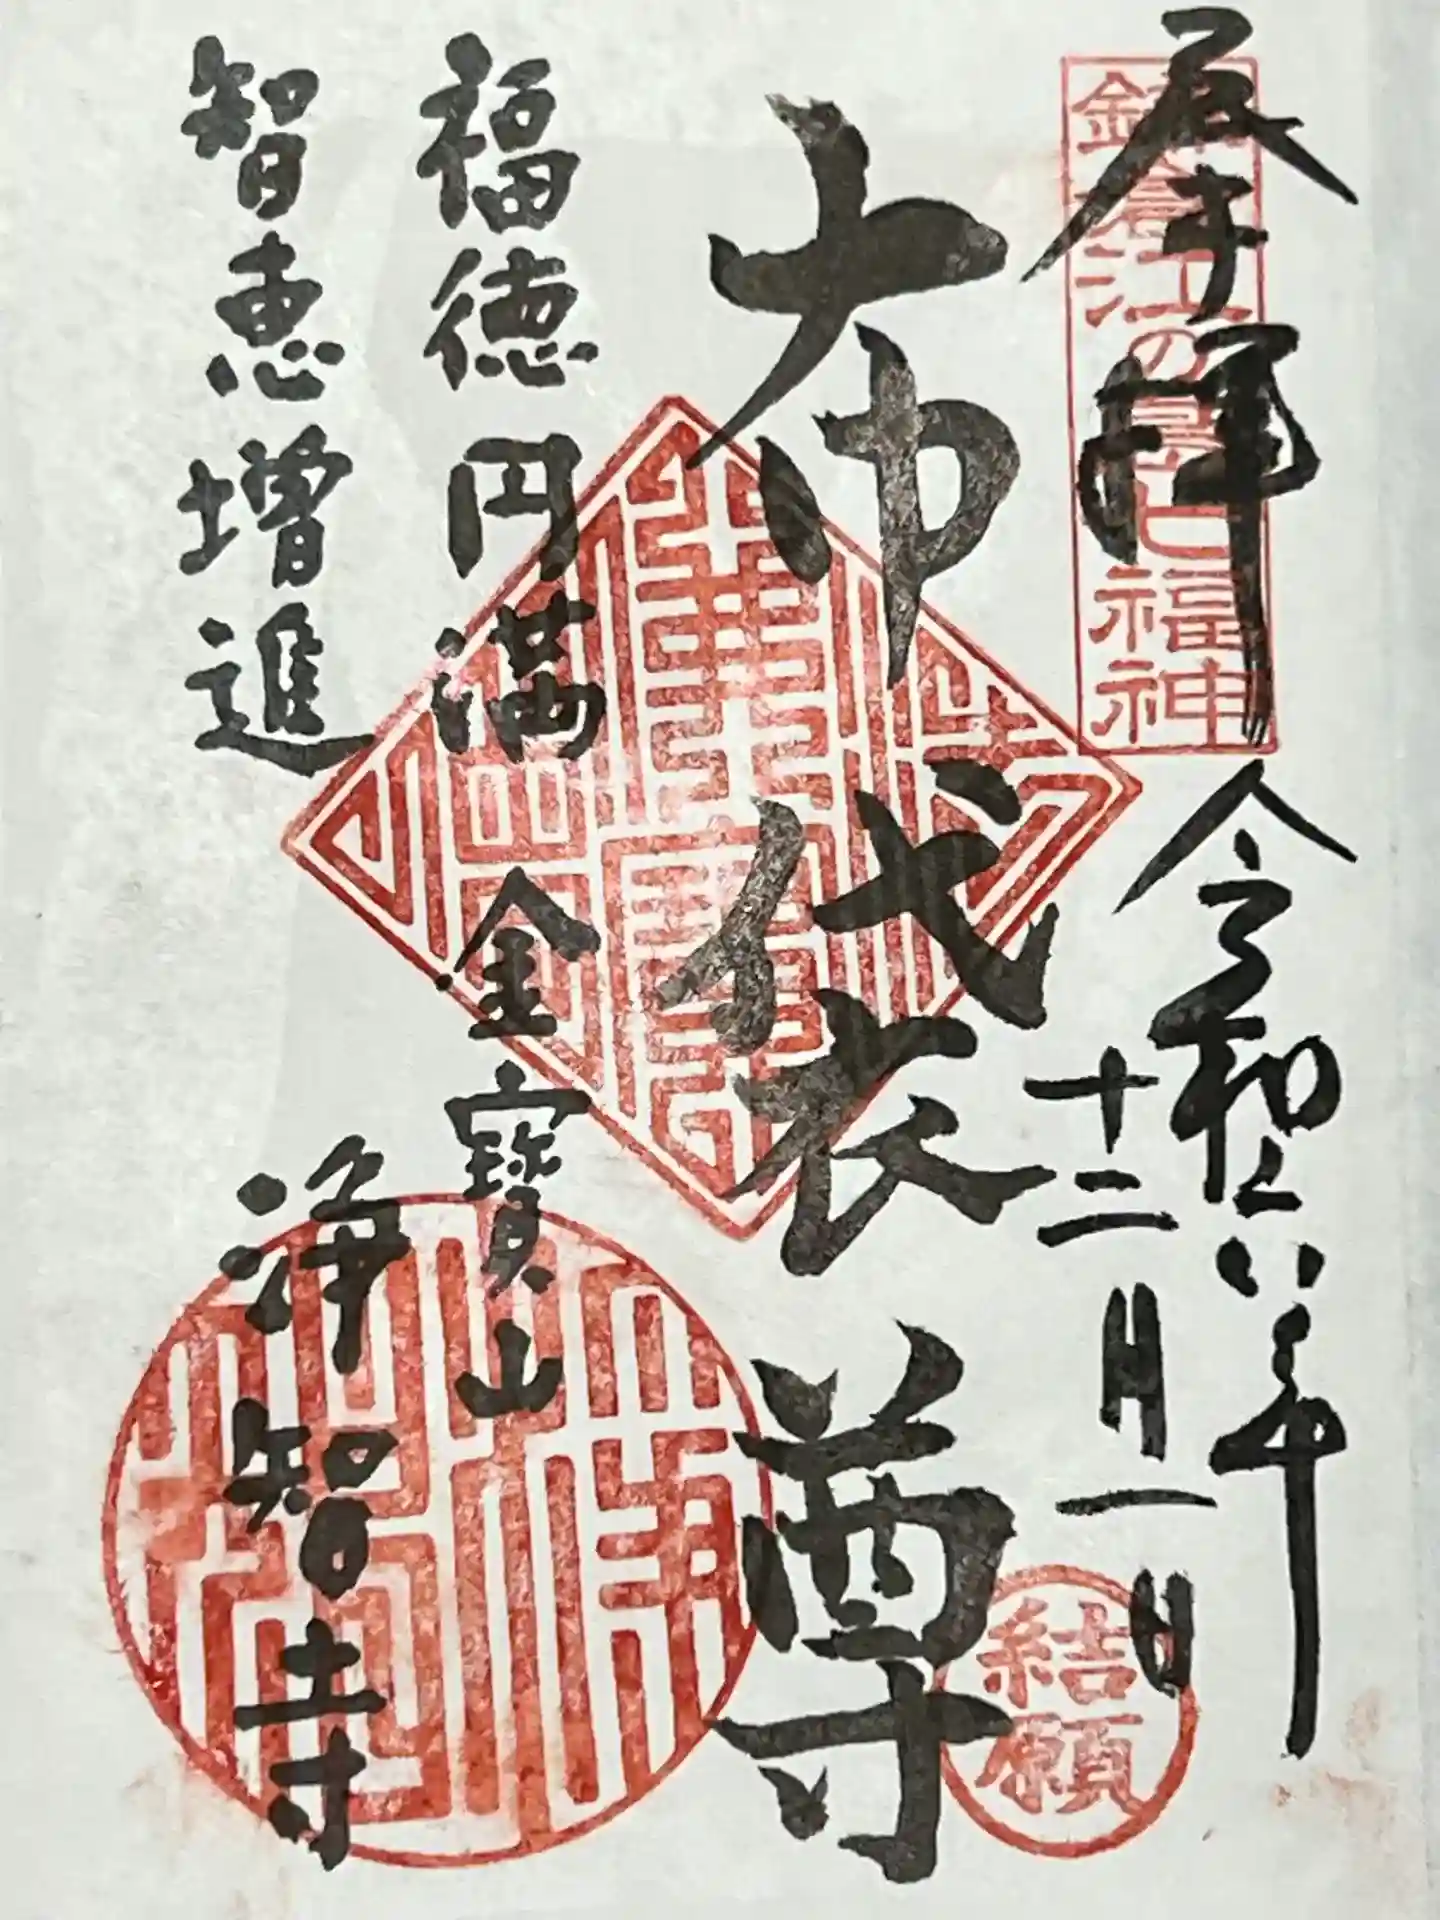 奉拝
令和六年
十二月一日
鎌倉江の島七福神
布袋尊
結願
福徳円満
金寳山
智恵増進
浄智寺